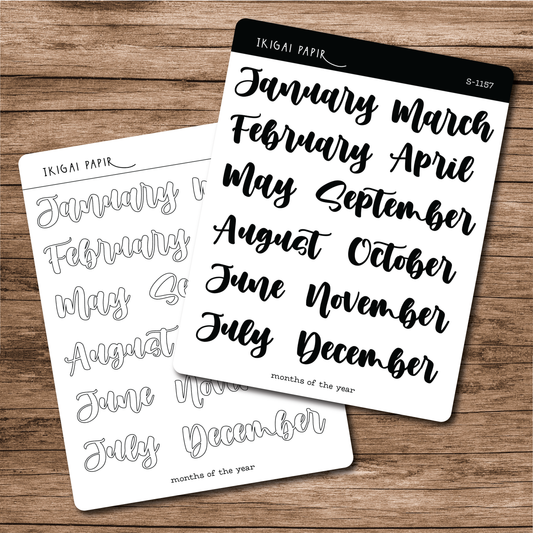 IKIGAI PAPIR
S-1157
January March
February April
May September
August October
June November
July December
months of the year
IKIGAI PAPIR
January
February
May Se
August
June Nove
July December
months of the year